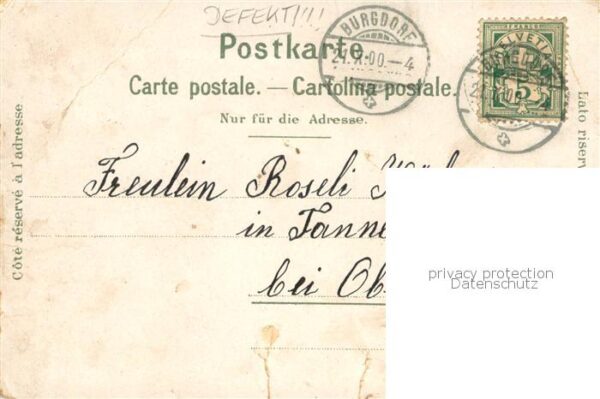 DEFEKT!!!!
BURGDORF
Postkarte.
Carte postale. — Cartolina postale.
Nur für die Adresse.
HELVETIA
5
Côté réservé à l'adresse
Lato riserv
Freulein Roseli
in Tanne
bei Ob
privacy protection
Datenschutz